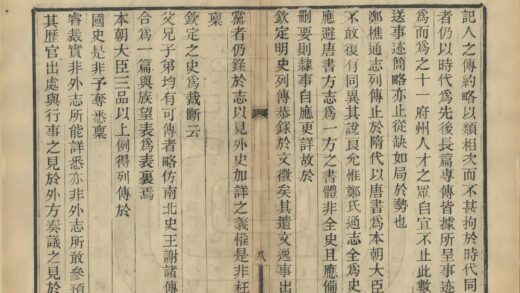 記人之傳約略以類相次而不甚拘於時代同
者仍以時代爲先後長篇專傳皆據所呈事迹
爲而爲之十一府州人才之眾自宜不止此數
送事迹簡略亦止從缺如局於勢也
鄭樵通志列傳止於隋代以唐書爲本朝大臣
不敢復有同異其說良允惟鄭氏通志全爲史
應避唐書方志爲一方之書體非全史且應備
刪要則隸事自應更詳故於
欽定明史列傳恭錄於文徵矣其遺文逸事出
八
黨者仍錄於志以見外史加詳之義權是非枉
稟
欽定之史爲裁斷云
父兄子弟均有可傳者略仿南北史王謝諸傳
合爲一篇與族望表爲表裏焉
本朝大臣三品以上例得列傳於
國史是非予奪悉稟
睿裁實非外志所能詳悉亦非外志所敢參預
其歷官出處與行事之見於外方奏議之見於